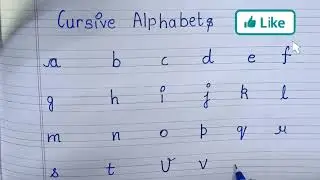 Cursive Alphabets
Like
a b c d e f
g h i j k l
m n o p q r
s t u v